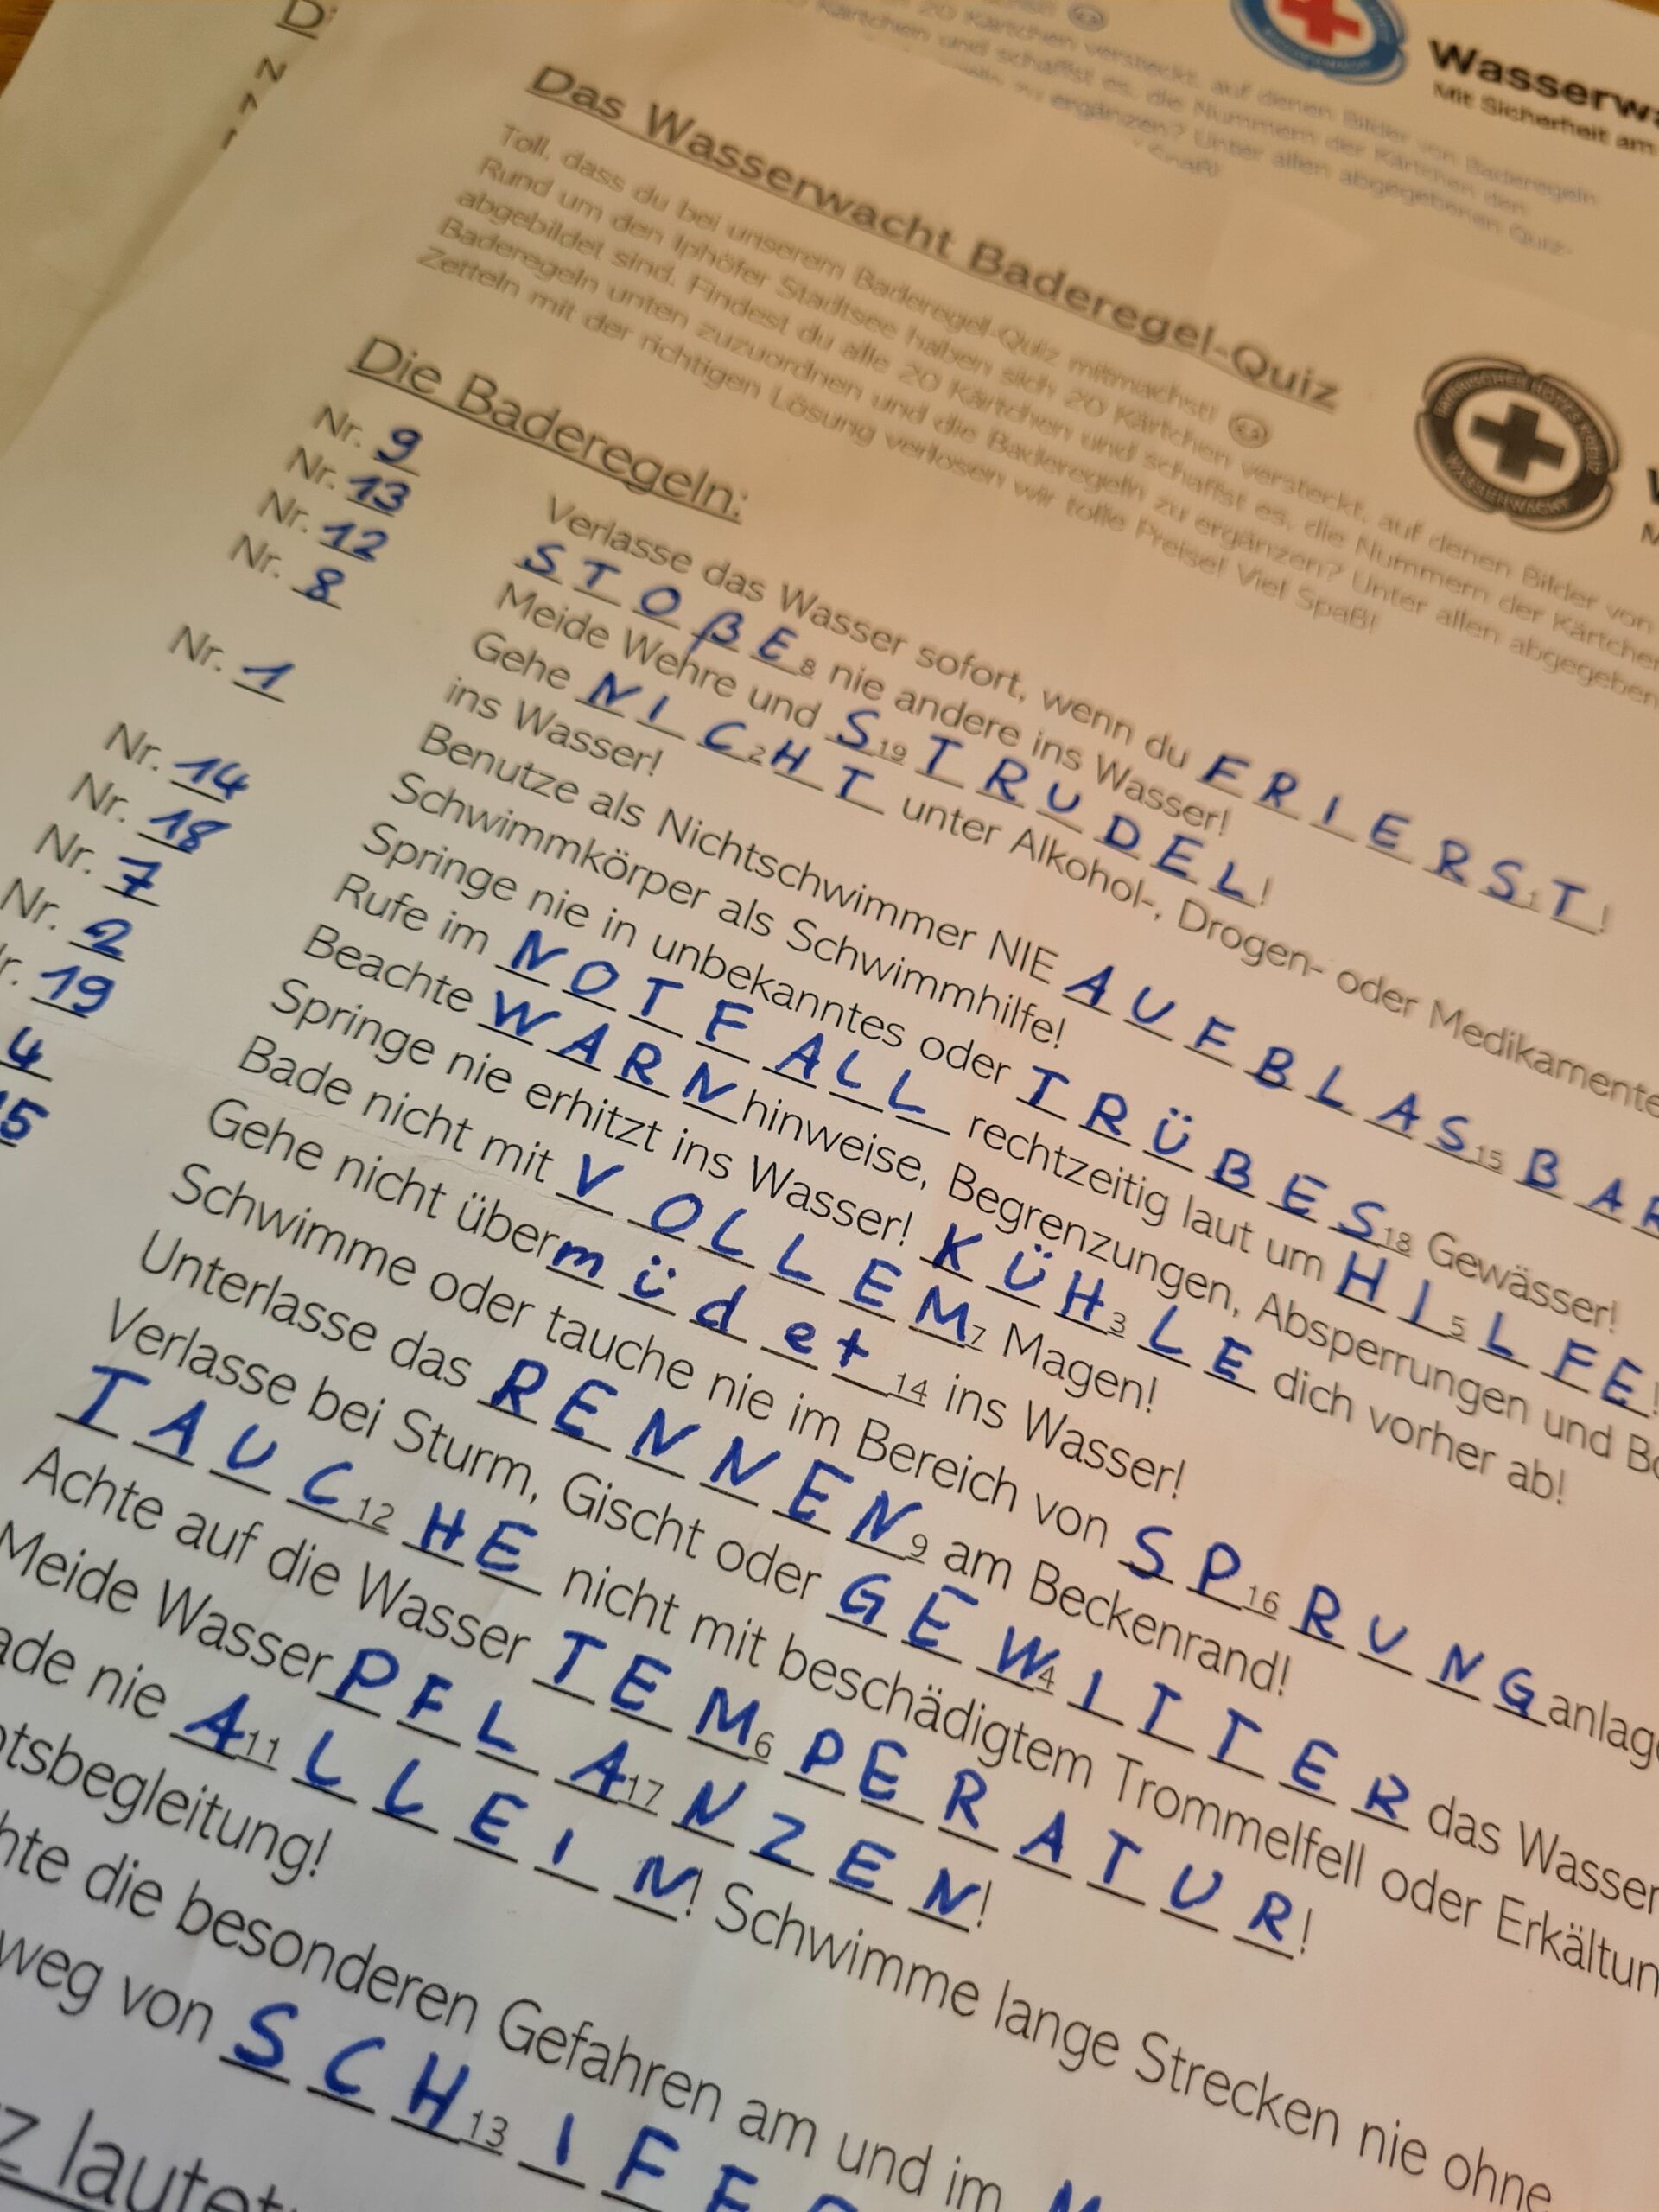 Wasserwa
Mit Sicherheit am
Das Wasserwacht Baderegel-Quiz
Toll, dass du bei unserem Baderegel-Quiz mitmachst!
Rund um den Iphöfer Stadtsee haben sich 20 Kärtchen versteckt, auf denen Bilder von
abgebildet sind. Findest du alle 20 Kärtchen und schaffst es, die Nummern der Kärtchen
Baderegeln unten zuzuordnen und die Baderegeln zu ergänzen? Unter allen abgegeben
Zetteln mit der richtigen Lösung verlosen wir tolle Preise! Viel Spaß!
BAYERISCHES ROTES KREUZ
WASSERWACHT
Die Baderegeln:
Nr. 9 Verlasse das Wasser sofort, wenn du FRIERS1T!
Nr. 13 STOßE8 nie andere ins Wasser!
Nr. 12 Meide Wehre und S19TRUDEL!
Nr. 8 Gehe NIC2HT unter Alkohol-, Drogen- oder Medikamente
ins Wasser!
Nr. 1 Benutze als Nichtschwimmer NIE AUFBLAS15BAR
Schwimmkörper als Schwimmhilfe!
Nr. 14 Springe nie in unbekanntes oder TRÜBES18 Gewässer!
Nr. 18 Rufe im NOTFALL rechtzeitig laut um HI5LFE!
Nr. 7 Beachte WARNhinweise, Begrenzungen, Absperrungen und Bo
Nr. 2 Springe nie erhitzt ins Wasser! KÜH3LE dich vorher ab!
r. 19 Bade nicht mit VOLLEM7 Magen!
4 Gehe nicht übermüdet14 ins Wasser!
15 Schwimme oder tauche nie im Bereich von SP16RUNGanlag
Unterlasse das RENNEN9 am Beckenrand!
Verlasse bei Sturm, Gischt oder GEW4ITTER das Wasser
TAUC12HE nicht mit beschädigtem Trommelfell oder Erkältun
Achte auf die Wasser TEM6PERATUR!
Meide WasserPFLA17NZEN!
ade nie A11LLEIN! Schwimme lange Strecken nie ohne
otsbegleitung!
hte die besonderen Gefahren am und im
weg von SCH13IFFE
z lautet: